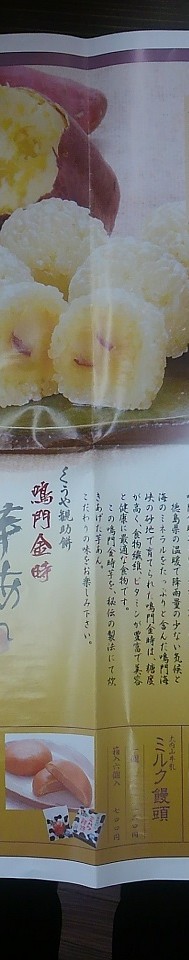 徳島県の温暖で降雨量の少ない気候と
海のミネラルをたっぷりと含んだ鳴門海
峡の砂地で育てられた鳴門金時は、糖度
が高く、食物繊維、ビタミンが豊富で美容
と健康に最適な食物です。
この鳴門金時芋を、秘伝の製法にて炊
きあげた芋あん。
こだわりの味をお楽しみ下さい。
鳴門金時
ミルク饅頭
箱入六個入
七〇〇円